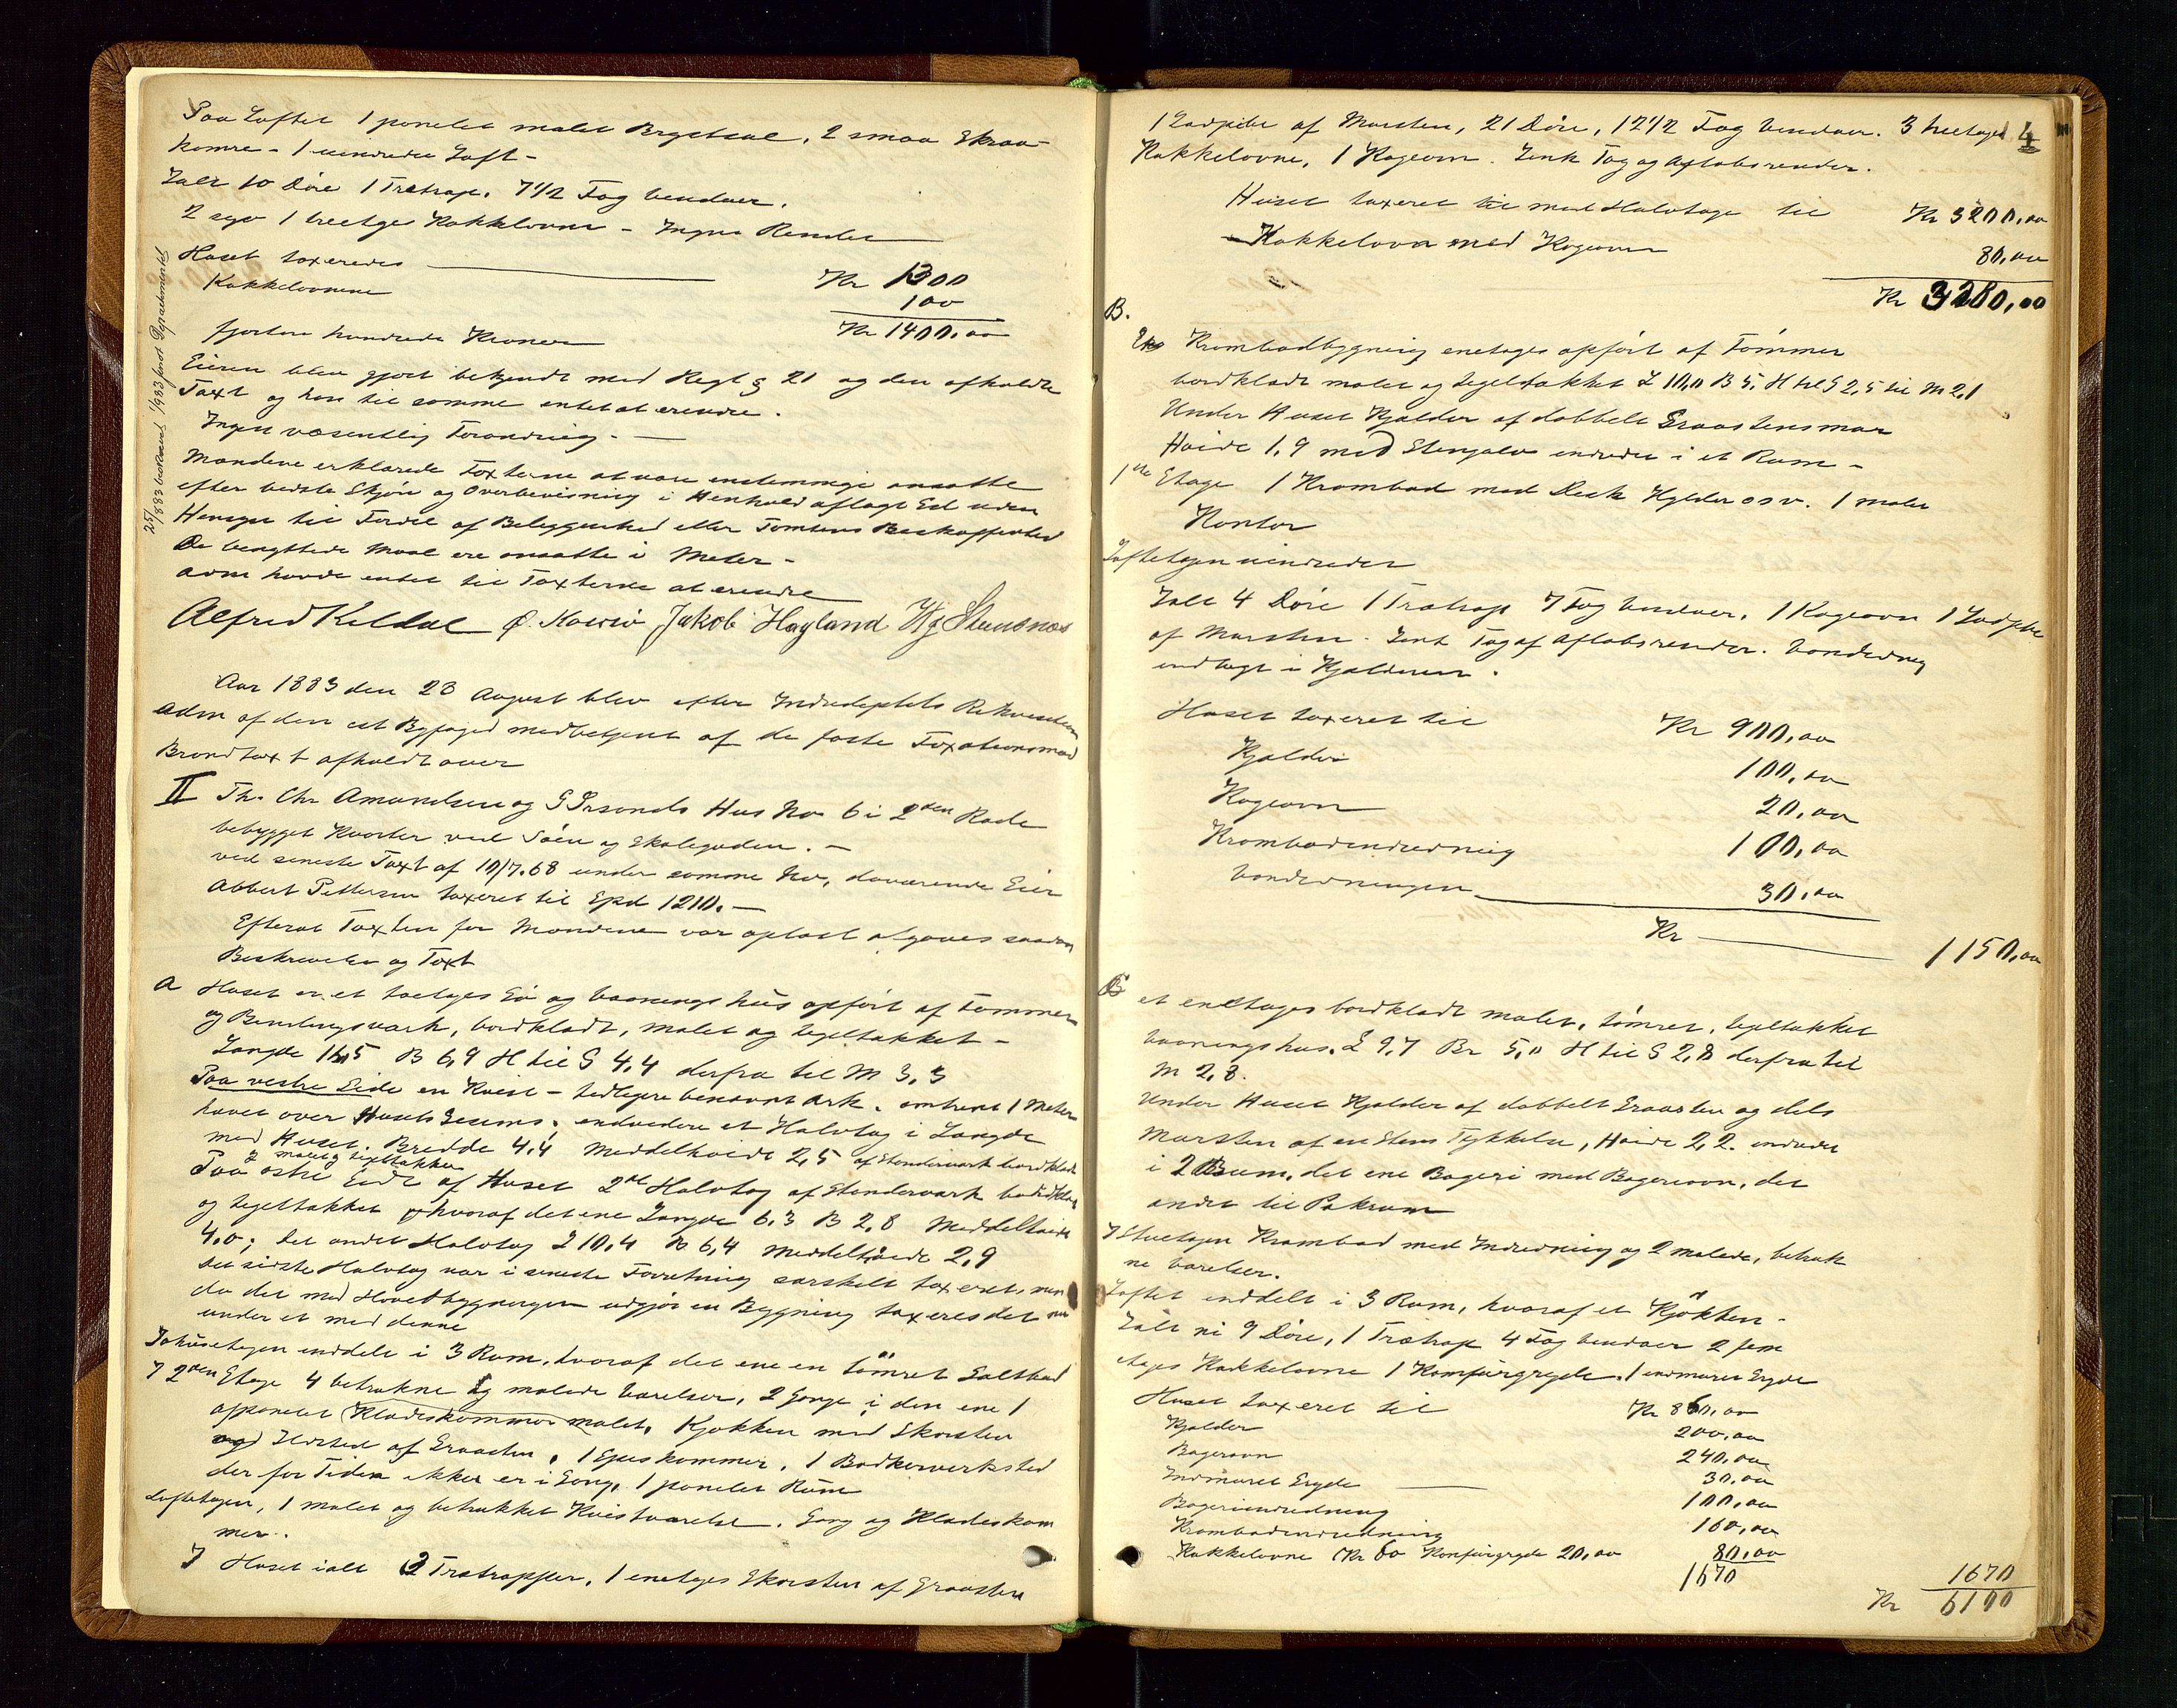 Paa Loftet 1 panelet malet Brystsval, 2 smaa Skraa-
kamre - 1 uindredet Loft -
Ialt 10 Döre 1 Trætrap. 7 1/2 Fag Venduer.
2 1 treetges Kakkelovne - Ingen Render
Huset taxeredes Kr 1300
Kakkelovnene 100
fjorten hundrede Kroner Kr 1400,00
Eieren blev gjort bekjendt med Regl § 21 og den afholdte
Taxt og havde til samme intet at erindre.
Ingen væsentlig Forandring. -
Mændene erklærede Taxterne at være enstemmige ansatte
efter bedste Skjön og Overbevisning i Henhold aflagt Ed uden
Hensyn til Fordel af Beliggenhed eller Tomtens Beskaffenhed
De benyttede Maal ere ansatte i Meter -
adm havde intet til Taxterne at erindre
Alfred Keldal Jakob Hagland
25/8 83 beskrevet 1/9 83 sendt Departementet
Aar 1883 den 23 August blev efter Indredeptets Rekvisition
adm af den cst Byfoged medbetjent af de faste Taxationsmænd
Brandtaxt afholdt over
II Th. Chr Amundsen og Hus No 6 i 2den Rode
bebygget Kvarter ved Söen og Skolegaden. -
ved seneste Taxt af 10/7.68 under samme No, daværende Eier
Abbert Pettersen taxeret til Spd 1210. -
Efterat Taxten for Mændene var oplæst afgaves saadan
Beskrivelse og Taxt
a Huset er et toetges Sö og Vaaningshus opfört af Tömmer
og Bindingsværk, bordklædt, malet og tegltækket -
Længde 16,5 B 6,9 H til G 4,4 derfra til M 3,5
Paa vestre Side en Kvist - tidligere benævnt Ark. omtrent 1 Meter
hævet over Husets Gesims, endvidere et Halvtag i Længde
med Huset. Bredde 4,4 Middelhöide 2,5 af Stenderværk bordklædt
malet og tegltækket
Paa østre Side af Huset 2de Halvtag af Stenderværk bordklædt
og tegltækket hvoraf det ene Længde 6,3 B 2,8 Middelhöide
4,0; det andet Halvtag L 10,4 B 6,4 Middelhöide 2,9
Det sidste Halvtag var i seneste Forretning særskilt taxeret, men
da det med Hovedbygningen udgjör en Bygning taxeres det nu
under et med denne
Söhusetagen inddelt i 3 Rum, hvoraf det ene en tömret Saltbod
I 2den Etage 4 betrukne og malede Værelser, 2 Gange i den ene 1
afpanelet Klædeskammer malet, Kjøkken med Skorsten
og Ildsted af Graasten, 1 Spiskammer, 1 Bødkerverksted
der for Tiden ikke er i Gang, 1 panelet Rüm
Loftetagen, 1 malet og betrukket Kvistværelse. Gang og Klædeskam
mer.
I Huset ialt 3 Trætrapper, 1 enetages Skorsten af Graasten
4
1 Ladpibe af Mursten, 21 Döre, 12 1/2 Fag Venduer. 3 treetages
Kakkelovne, 1 Kogeovn. Zink Tag og Afløbsrender.
Huset taxeret til med Halvtage til Kr 3200,00
Kakkelovn med Kogeovn 80,00
Kr 3280,00
B.
Krambodbygning enetages opfört af Tömmer
bordklædt malet og tegltækket L 10,0 B 5, H til G 2,5 til M 2,1
Under Huset Kjælder af dobbelt Graastensmur
Höide 1,9 med Stengulv indredet i et Rum -
1ste Etage 1 Krambod med Disk Hylder osv. 1 malet
Kontor
Loftetagen uindredet
Ialt 4 Döre 1 Trætrap 7 Fag Venduer, 1 Kogeovn 1 Ladpibe
af Mursten. Zink Tag af Afløbsrender. Vandledning
indlagt i Kjælderen.
Huset taxeret til Kr 900,00
Kjælder 100,00
Kogeovn 20,00
Krambodindredning 100,00
Vandledningen 30,00
Kr 1150,00
et enetages bordklædt malet, tömret, tegltækket
Vaaningshus. L 9,7 Br 5,0 H til G 2,8 derfra til
M 2,8.
Under Huset Kjælder af dobbelt Graasten og dels
Mursten af en Stens Tykkelse, Höide 2,2. indredet
i 2 Rum, det ene Bageri med Bagerovn, det
andet til Pakrum
I Stuetagen Krambod med Indredning og 2 malede, betruk
ne Værelser.
Loftet inddelt i 3 Rum, hvoraf et Kjøkken -
Ialt ni 9 Döre, 1 Trætrap 4 Fag Venduer 2 fem
etages Kakkelovne 1 Komfürgryde, 1 indmuret Gryde
Huset taxeret til Kr 860,00
Kjælder 200,00
Bagerovn 240,00
Indmuret Gryde 30,00
Bageriindredning 100,00
Krambodindredning 160,00
Kakkelovne Kr 60 Komfürgryde 20,00 80,00
1670 1670
Kr 6100